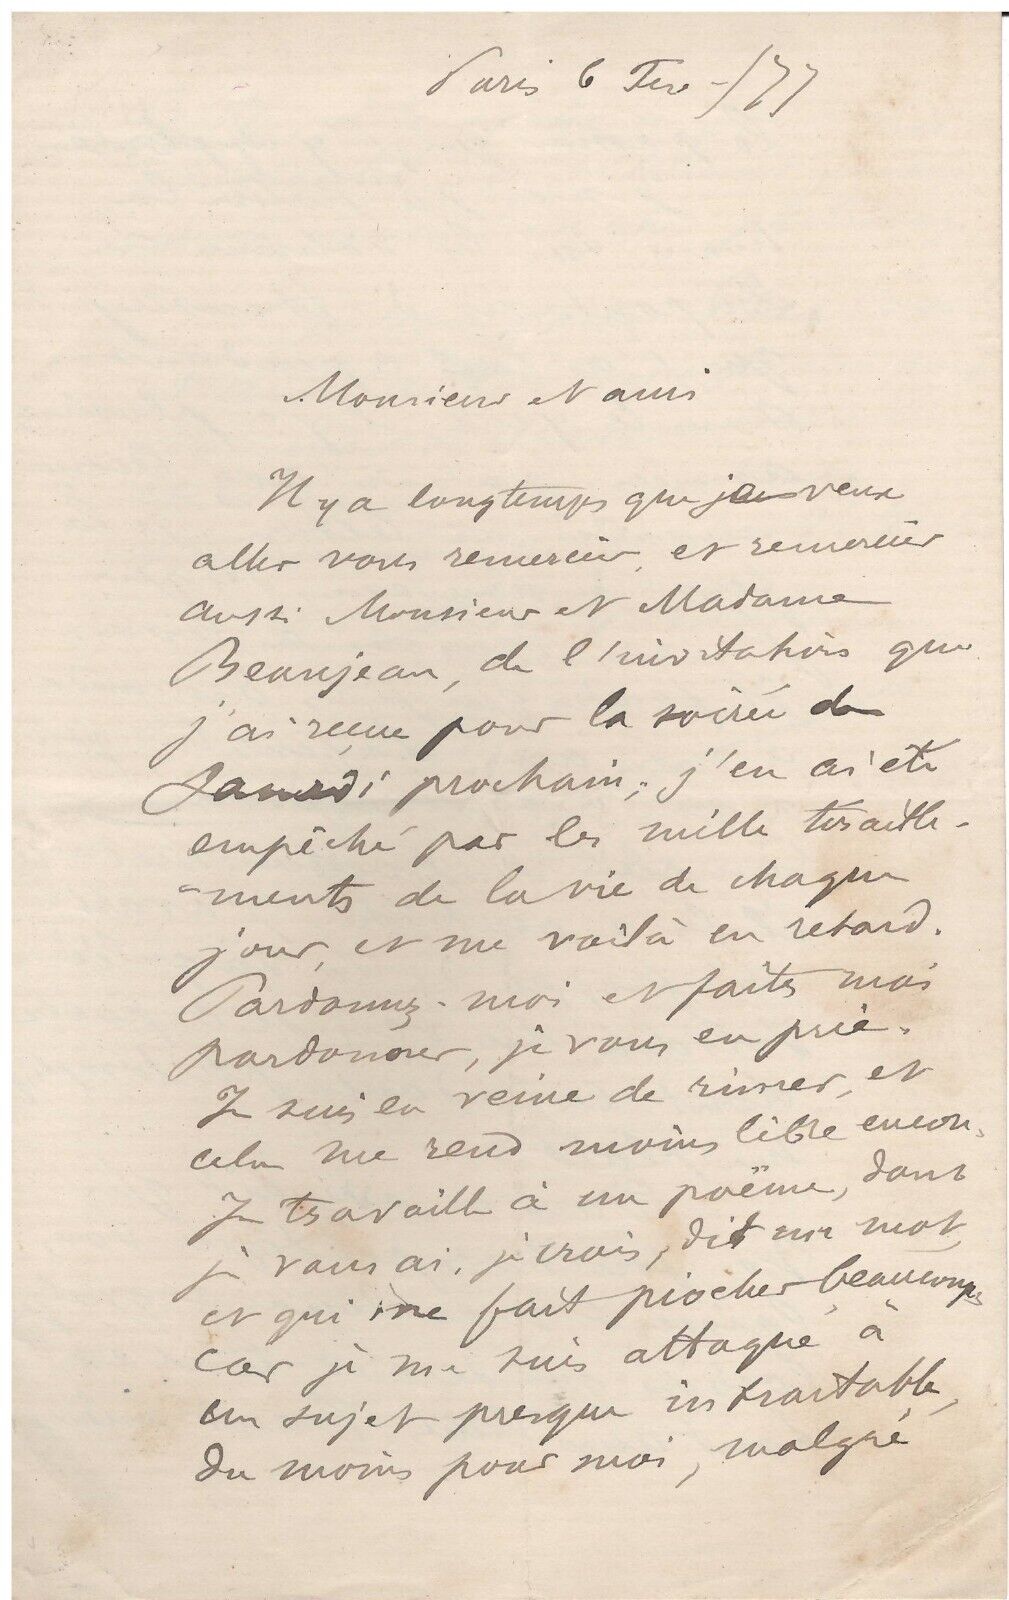 Paris 6 Fev -/77
Monsieur et ami
Il y a longtemps que je veux
aller vous remercier, et remercier
aussi Monsieur et Madame
Beaujean, de l'invitation que
j'ai reçue pour la soirée de
Samedi prochain; j'en ai été
empêché par les mille tiraille-
-ments de la vie de chaque
jour, et me voilà en retard.
Pardonnez-moi et faites moi
pardonner, je vous en prie.
Je suis en veine de rimer, et
cela me rend moins libre encore.
Je travaille à un poëme, dont
je vous ai, je crois, dit un mot,
et qui me fait piocher beaucoup,
car je me suis attaqué à
un sujet presque intraitable,
du moins pour moi, malgré